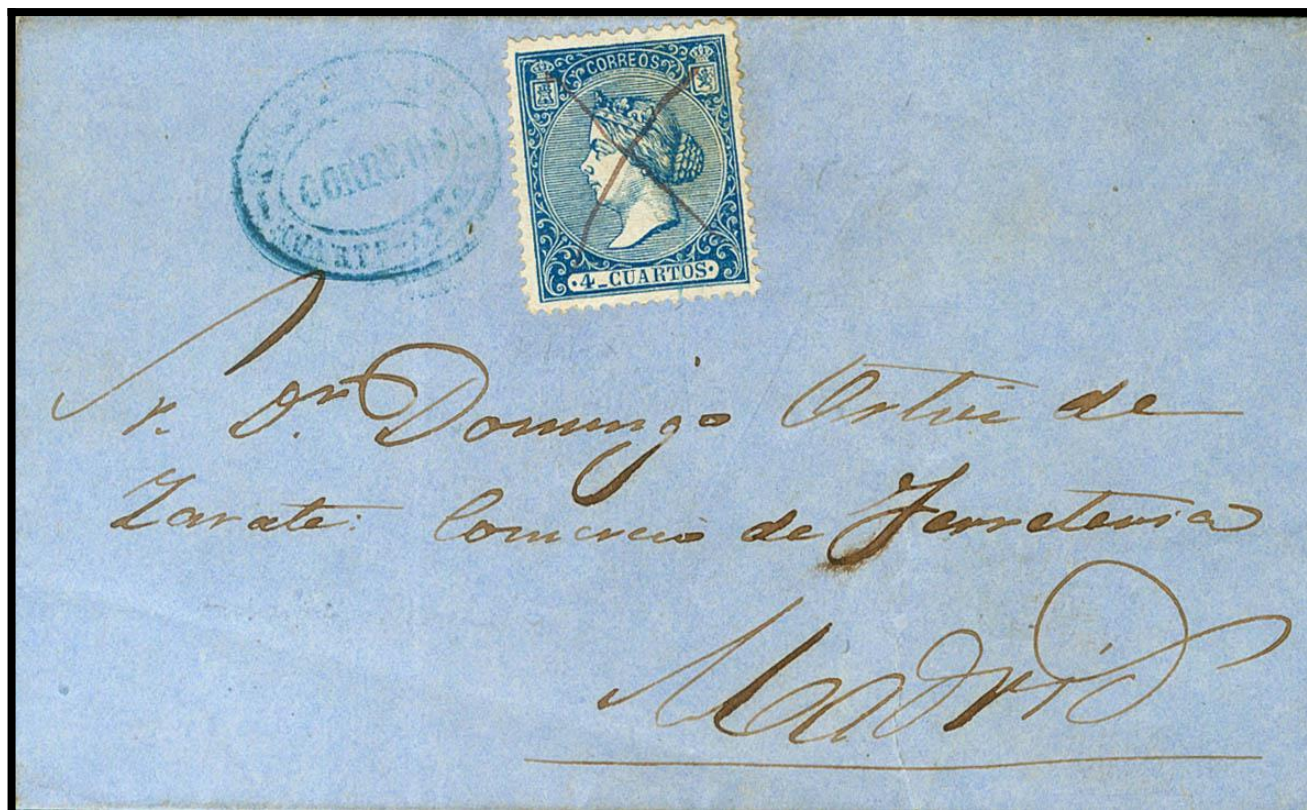 CORREOS
4_CUARTOS
Sr. Dn. Domingo de
Zarate: Comercio de Ferreteria
Madrid